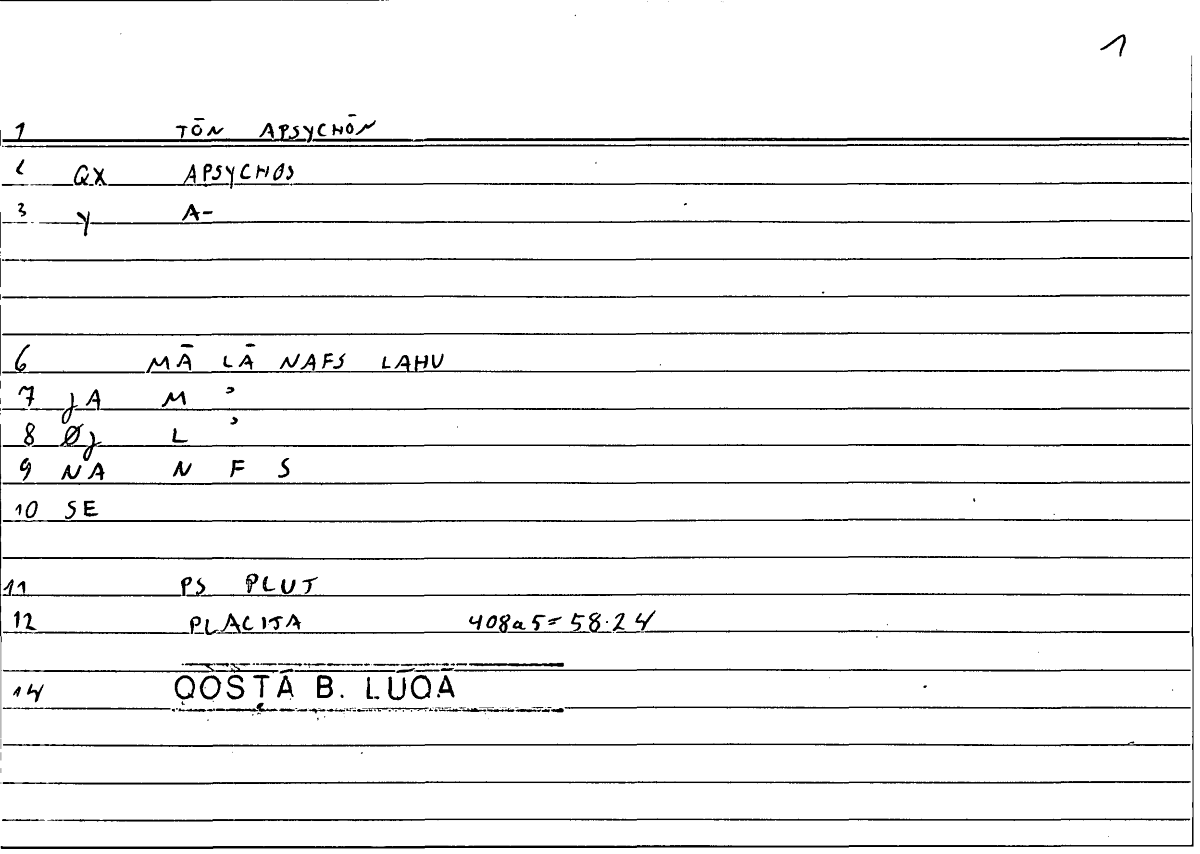 1
1 TŌN APSYCHŌN
2 QX APSYCHOS
3 Y A-
6 MĀ LĀ NAFS LAHU
7 JA M ʾ
8 ØJ L ʾ
9 NA N F S
10 SE
11 PS PLUT
12 PLACITA 408a5=58.24
14 QOSṬĀ B. LŪQĀ